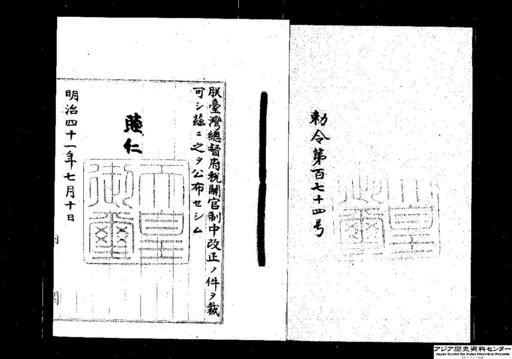 勅令第百七十四号
朕臺灣總督府税關官制中改正ノ件ヲ裁
可シ茲ニ之ヲ公布セシム
睦仁
天皇御璽
明治四十一年七月十日
アジア歴史資料センター
Japan Center for Asian Historical Records